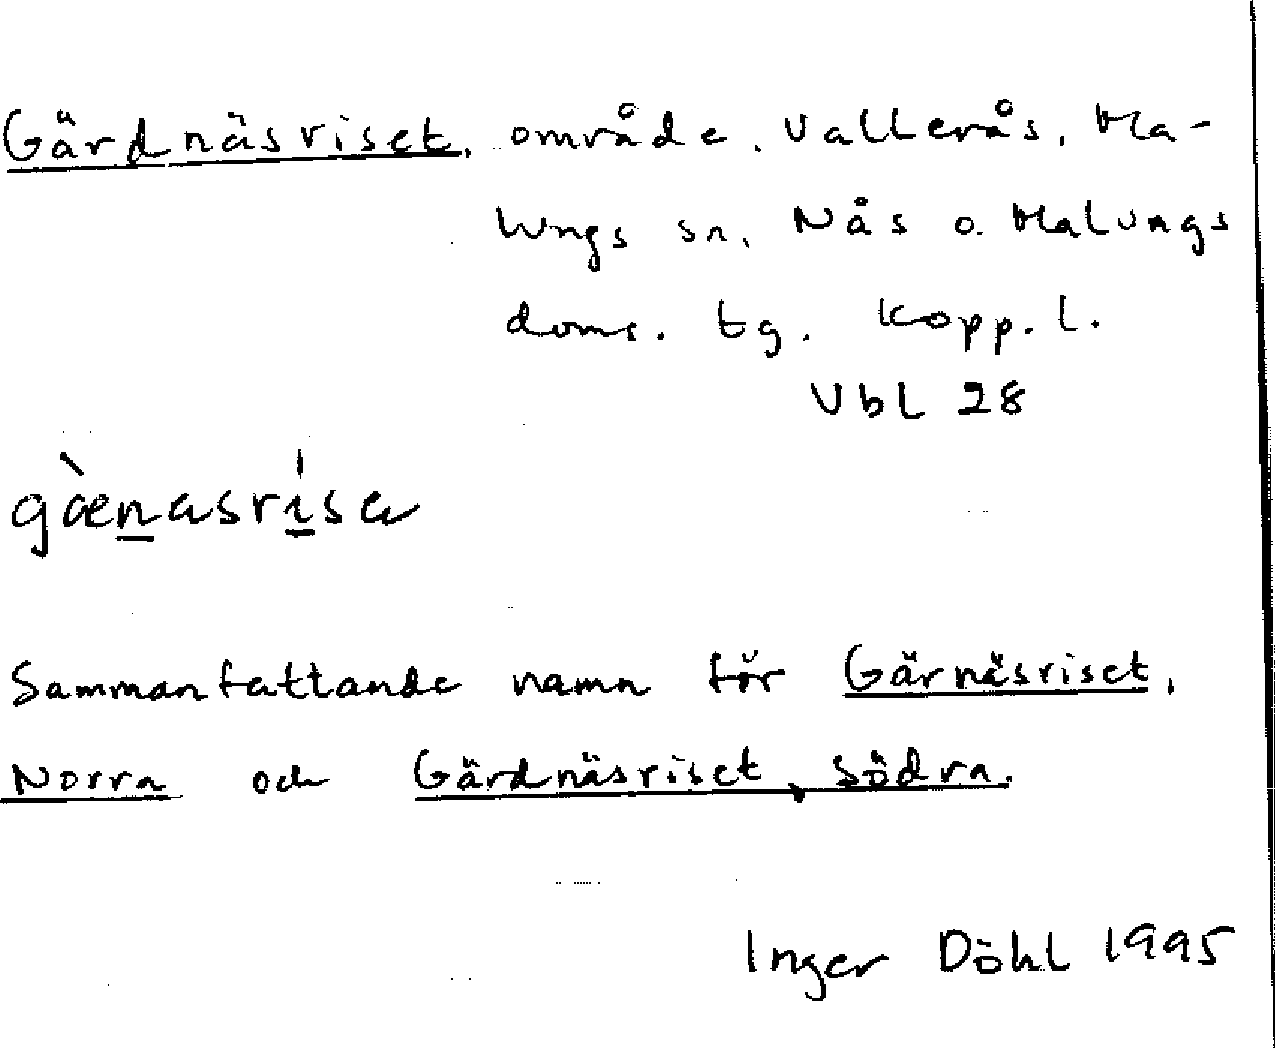 Gärdnäsriset, område, Vallerås, Ma-
lungs sn, Nås o. Malungs
doms. tg. Kopp. l.
Vbl 28
gæ̀n̲asrı̲́sa
Sammanfattande namn för Gärnäsriset,
Norra och Gärdnäsriset, Södra.
Inger Döhl 1995